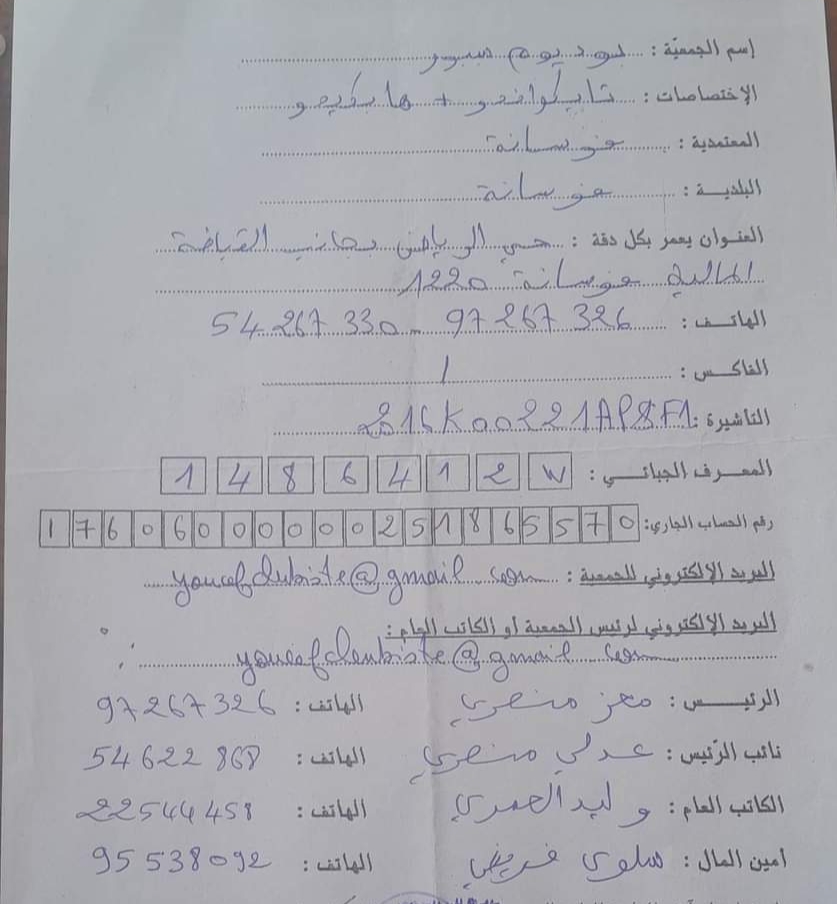 إسم الجمعيّة : بوديوم سبور
الإختصاصات : تايكواندو + هابكيدو
المعتمدية : فوسانة
البلديــة : فوسانة
العنوان يعمر بكل دقة : حي الرياض بجانب القباضة
المالية فوسانة 1220
الهاتـف : 97 267 326 - 54 267 330
الفاكـس : /
التأشيرة : 2016K00221APSF1
المعـرف الجبائـي : 1 4 8 6 4 1 2 W
رقم الحساب الجاري: 1 7 6 0 6 0 0 0 0 0 0 2 5 1 8 6 5 5 7 0
البريد الإلكتروني للجمعية : @gmail.com
البريد الإلكتروني لرئيس الجمعية أو الكاتب العام :
@gmail.com
الرئيـــس : معز منصري الهاتف : 97267326
نائب الرّئيس : عدلي منصري الهاتف : 54622 868
الكاتب العام : وليد العمري الهاتف : 22544458
أمين المال : سلوى فريضي الهاتف : 95 538 092